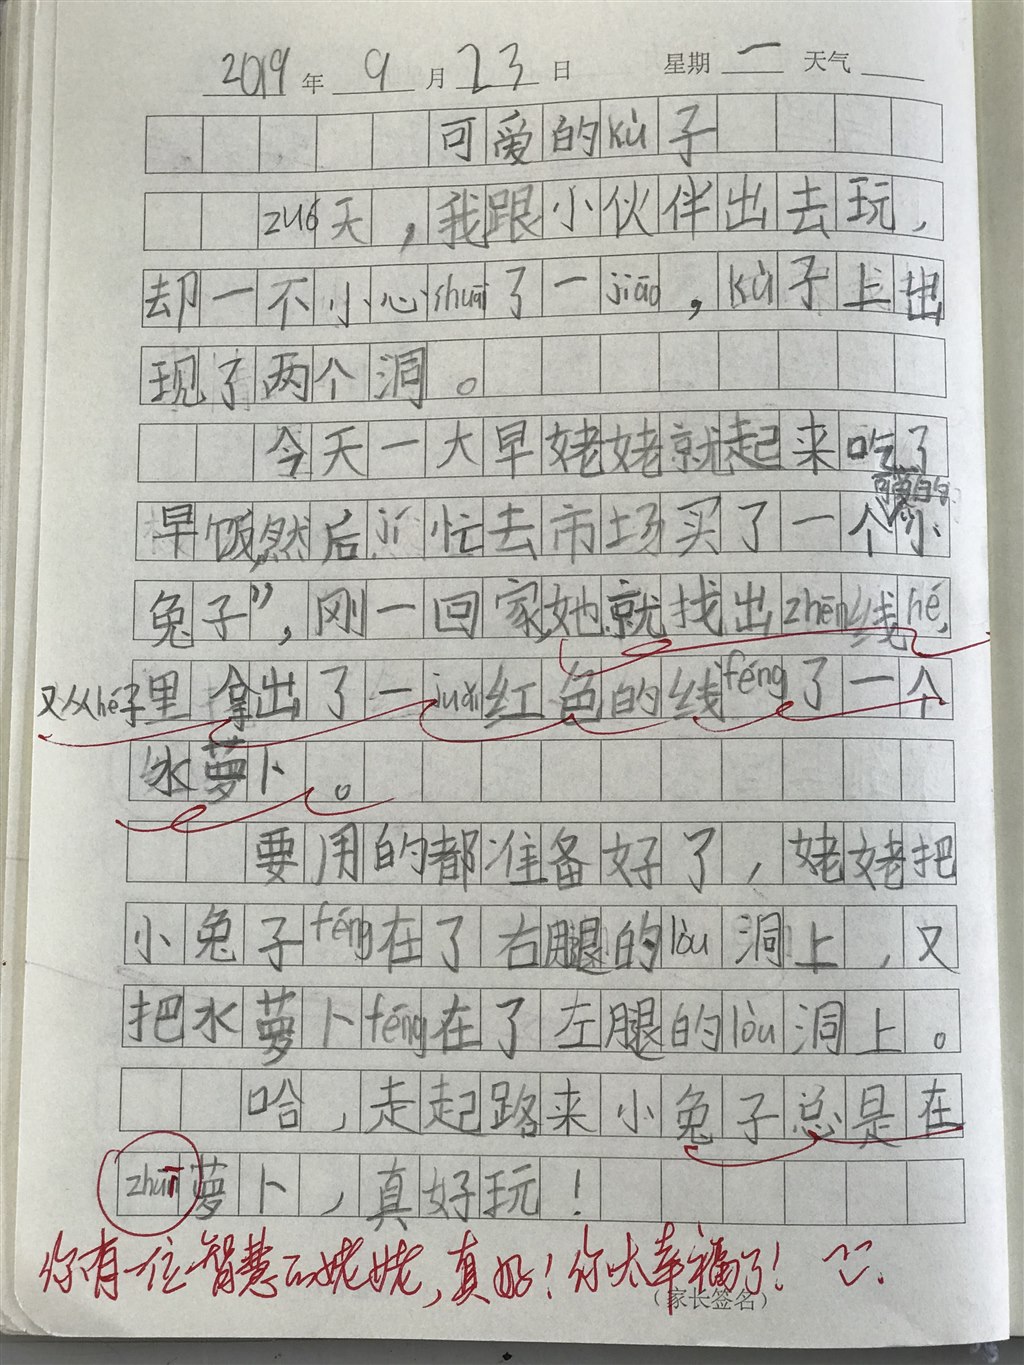 2019年9月23日 星期一 天气
可爱的kù子
zuó天，我跟小伙伴出去玩，
却一不小心shuāi了一jiāo，kù子上出
现了两个洞。
今天一大早姥姥就起来吃了
早饭，然后jí忙去市场买了一个可爱的“小
兔子”，刚一回家她就找出zhēn线hé，
又从hé子里拿出了一juǎn红色的线féng了一个
水萝卜。
要用的都准备好了，姥姥把
小兔子féng在了右腿的lòu洞上，又
把水萝卜féng在了左腿的lòu洞上。
哈，走起路来小兔子总是在
zhuī萝卜，真好玩！
你有一位智慧的姥姥，真好！你太幸福了！
（家长签名）